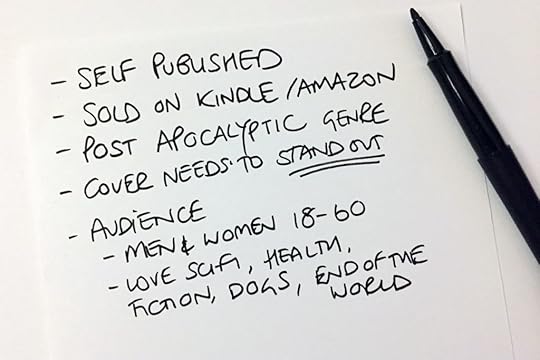 - SELF PUBLISHED
- SOLD ON KINDLE / AMAZON
- POST APOCALYPTIC GENRE
- COVER NEEDS TO STAND OUT
- AUDIENCE
- MEN & WOMEN 18-60
- LOVE SCI-FI, HEALTH,
FICTION, DOGS, END OF THE
WORLD